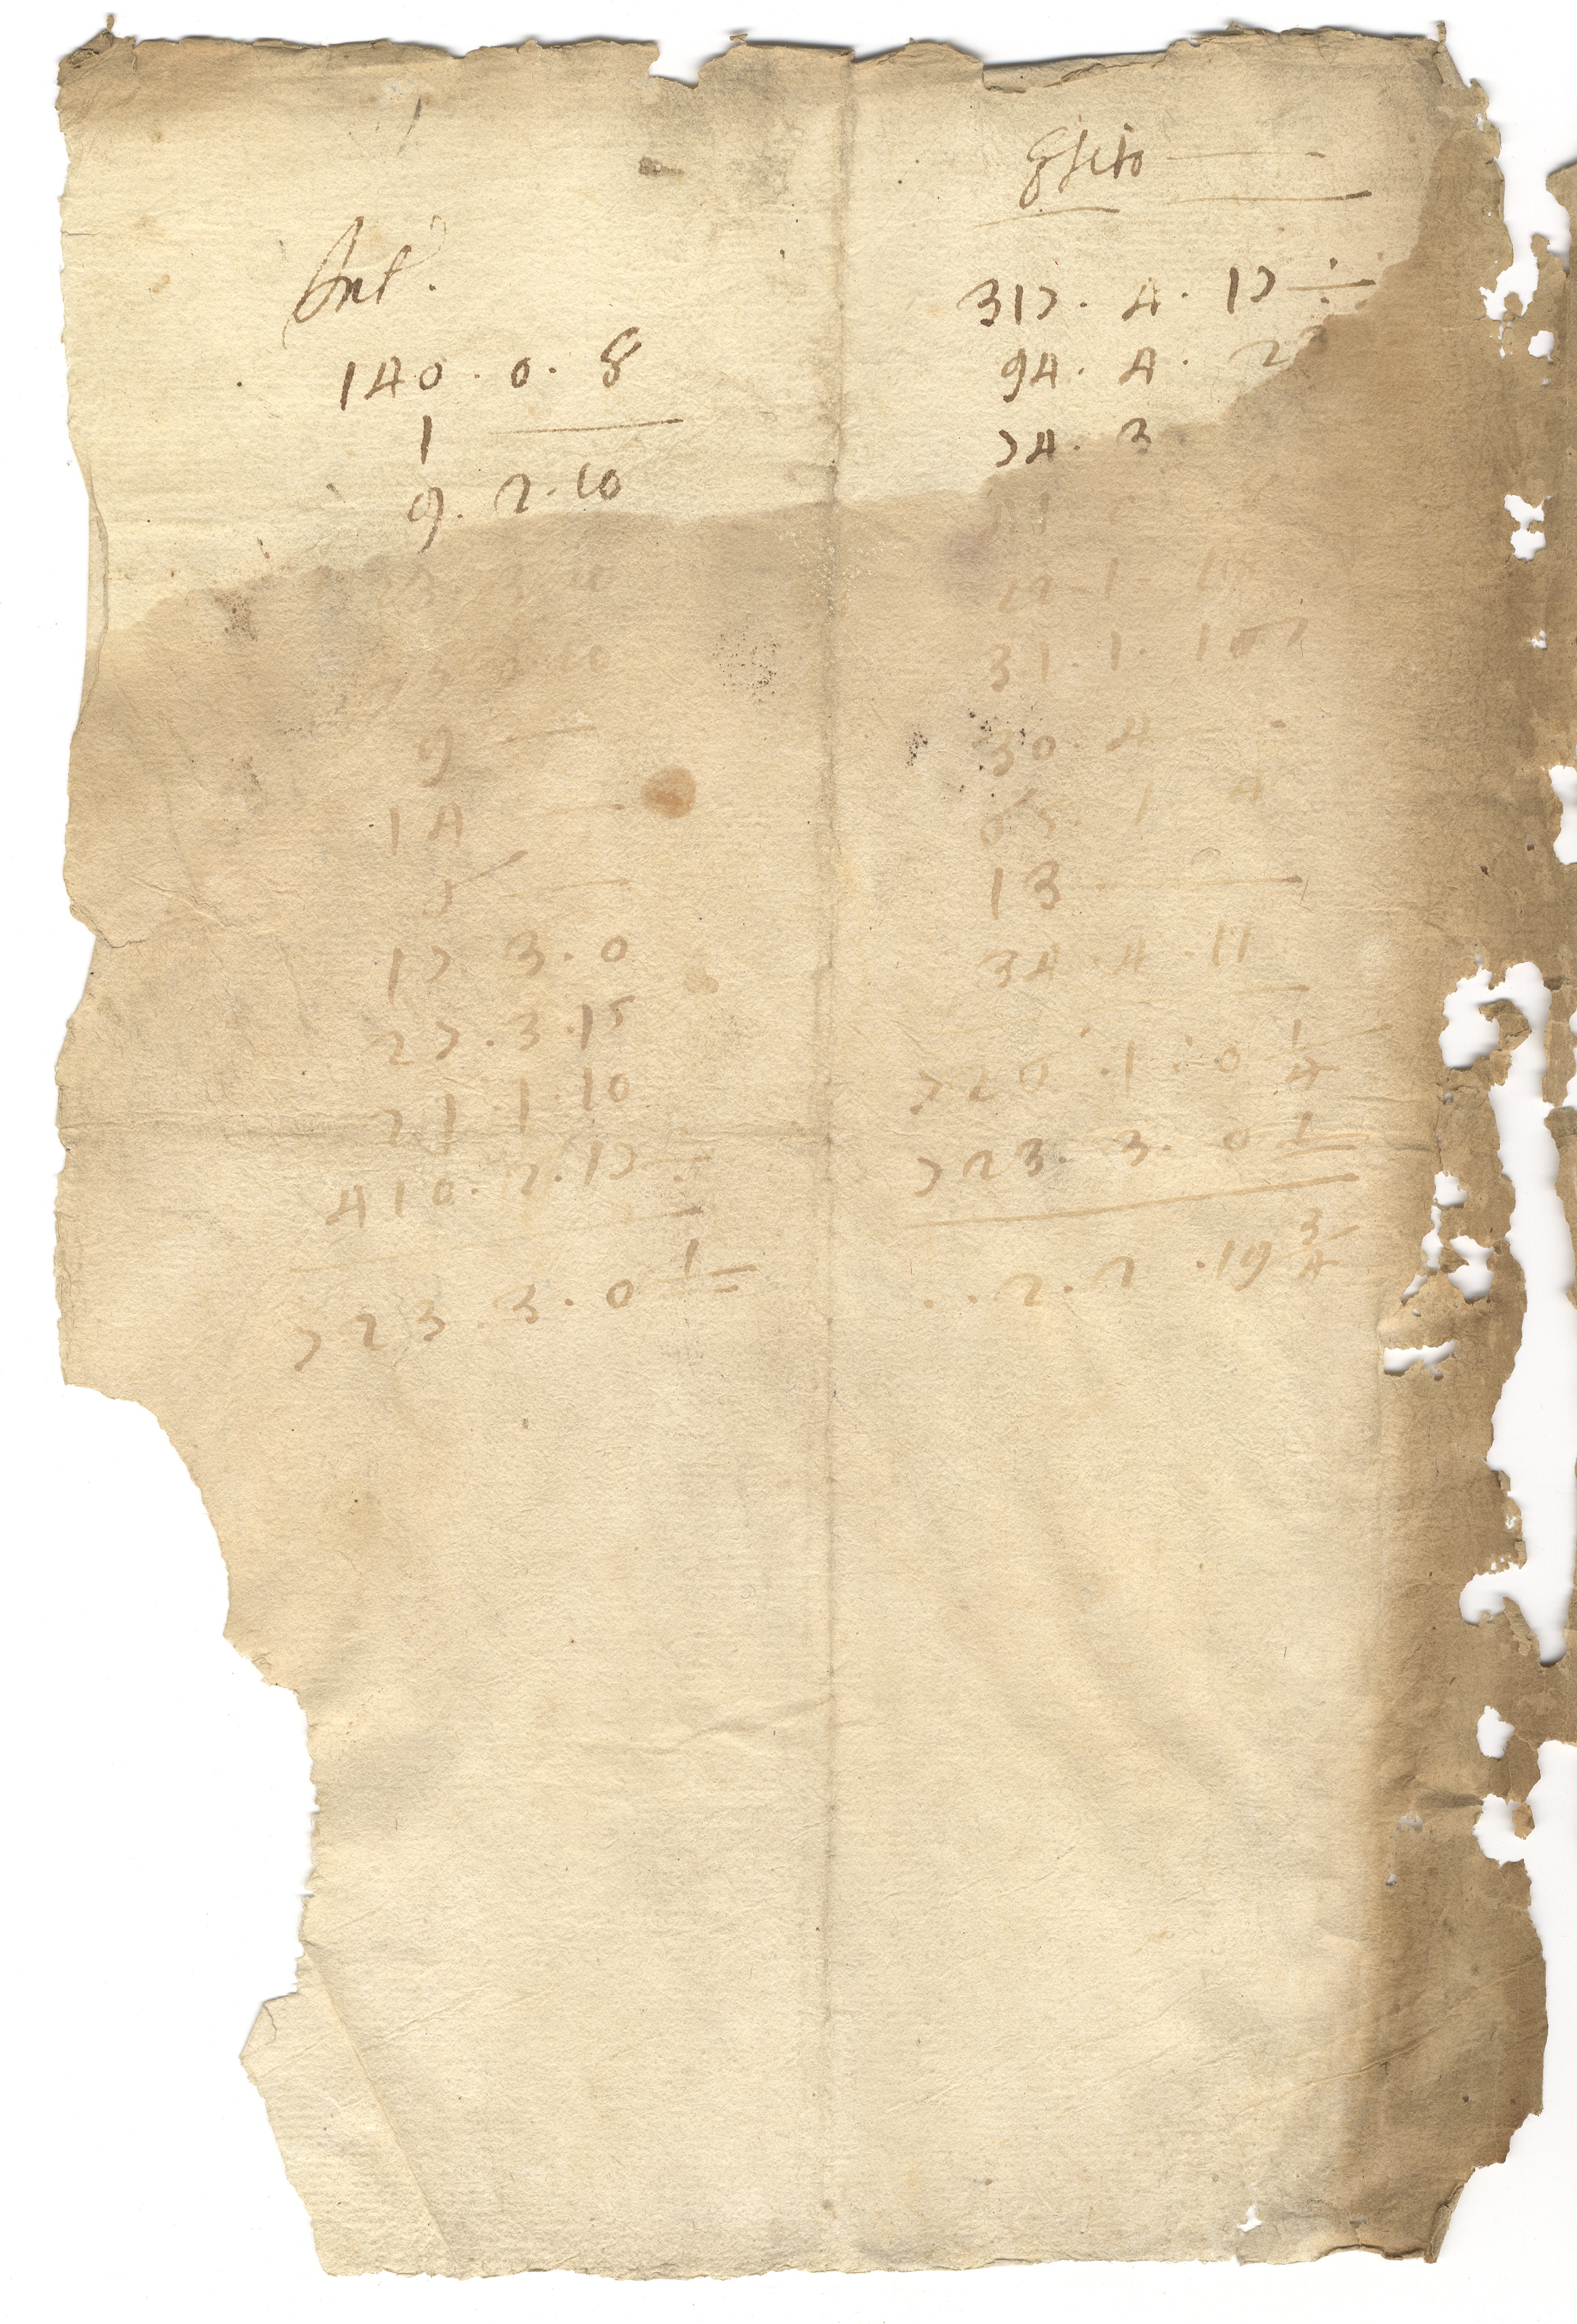 Int.
140.0.8
1 —
9.2.10
9 —
14 —
5 —
17 3.0
27.3.15
21.1.10
410.2.17 ÷
723.3.0 1/=
Esito —
317.4.17 ÷
94.4.2
74.3
31.1.
30.4 —
65 1 4
13 —
34.4.11
720.1.0 1/4
723.3.0 1/=
..2.2.19 3/4